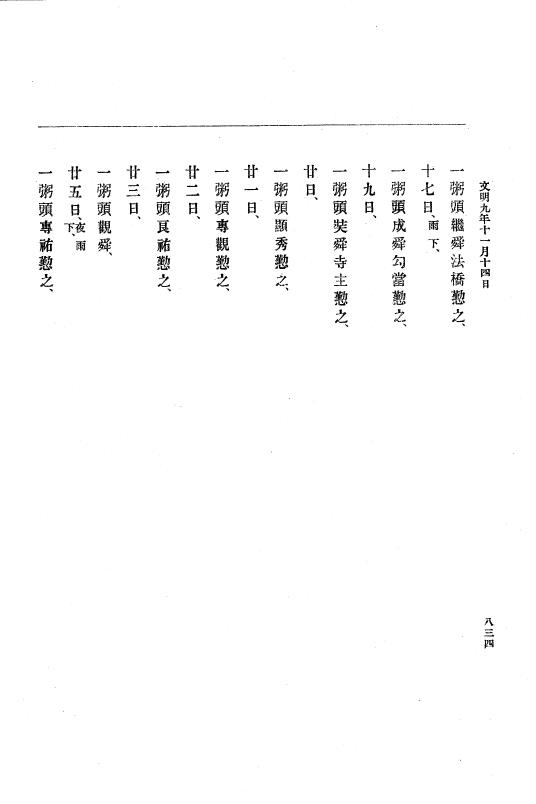 文明九年十一月十四日
一粥頭繼舜法橋懃之、
十七日、雨下、
一粥頭成舜勾當懃之、
十九日、
一粥頭奘舜寺主懃之、
廿日、
一粥頭顯秀懃之、
廿一日、
一粥頭專觀懃之、
廿二日、
一粥頭良祐懃之、
廿三日、
一粥頭觀舜、
廿五日、夜雨下、
一粥頭專祐懃之、
八三四